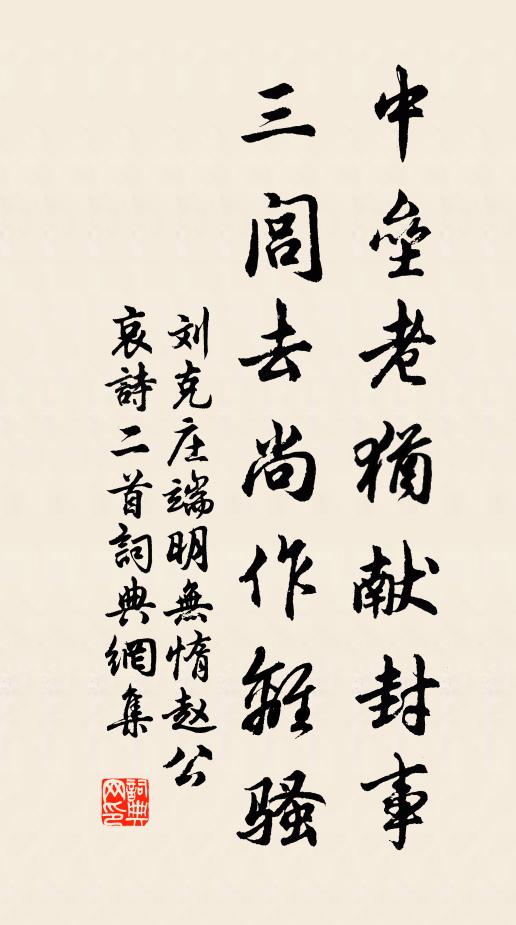 中壘老犹献封事
三闾去尚作離骚
刘克庄端明無惰赵公
哀詩二首詞典網集
詞典网印